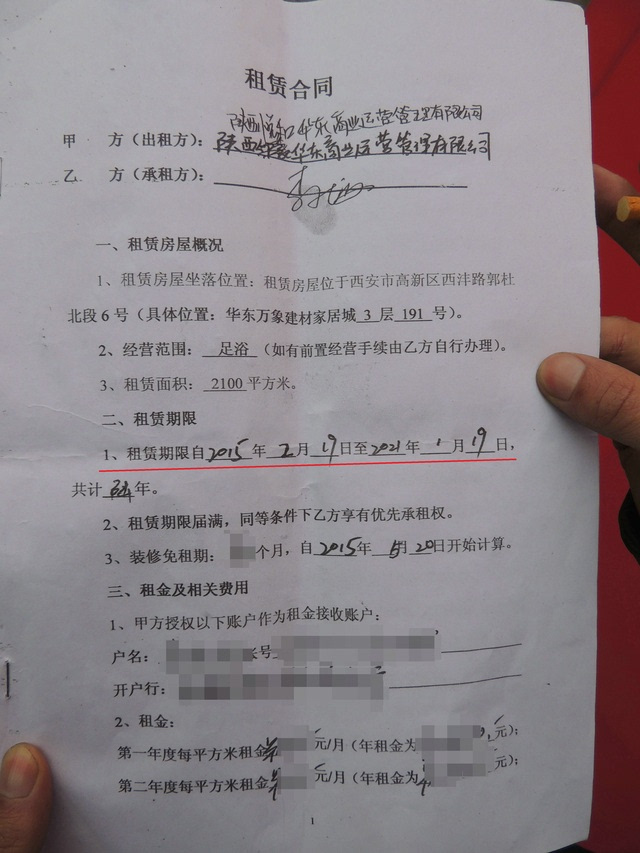 租赁合同
陕西 和华东商业运营管理有限公司
甲 方（出租方）：陕西 华东商业运营管理有限公司
乙 方（承租方）：李
一、租赁房屋概况
1、租赁房屋坐落位置：租赁房屋位于西安市高新区西沣路郭杜
北段6号（具体位置：华东万象建材家居城 3 层 191 号）。
2、经营范围： 足浴 （如有前置经营手续由乙方自行办理）。
3、租赁面积： 2100 平方米。
二、租赁期限
1、租赁期限自2015年 2月 19日至2021年 1月 19日，
共计 年。
2、租赁期限届满，同等条件下乙方享有优先承租权。
3、装修免租期： 个月，自 2015年 月 20日开始计算。
三、租金及相关费用
1、甲方授权以下账户作为租金接收账户：
户名： 账号
开户行：
2、租金：
第一年度每平方米租金 元/月（年租金为 元）；
第二年度每平方米租金 元/月（年租金为 元）；
1